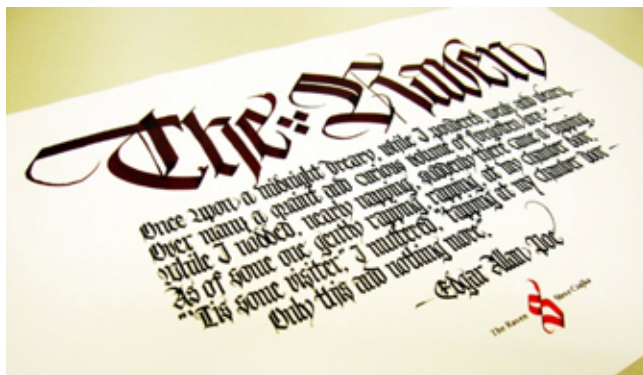 The Raven
Once upon a midnight dreary, while I pondered, weak and weary,
Over many a quaint and curious volume of forgotten lore –
While I nodded, nearly napping, suddenly there came a tapping,
As of some one gently rapping, rapping at my chamber door.
"'Tis some visiter," I muttered, "tapping at my chamber door –
Only this and nothing more."
– Edgar Allan Poe
The Raven